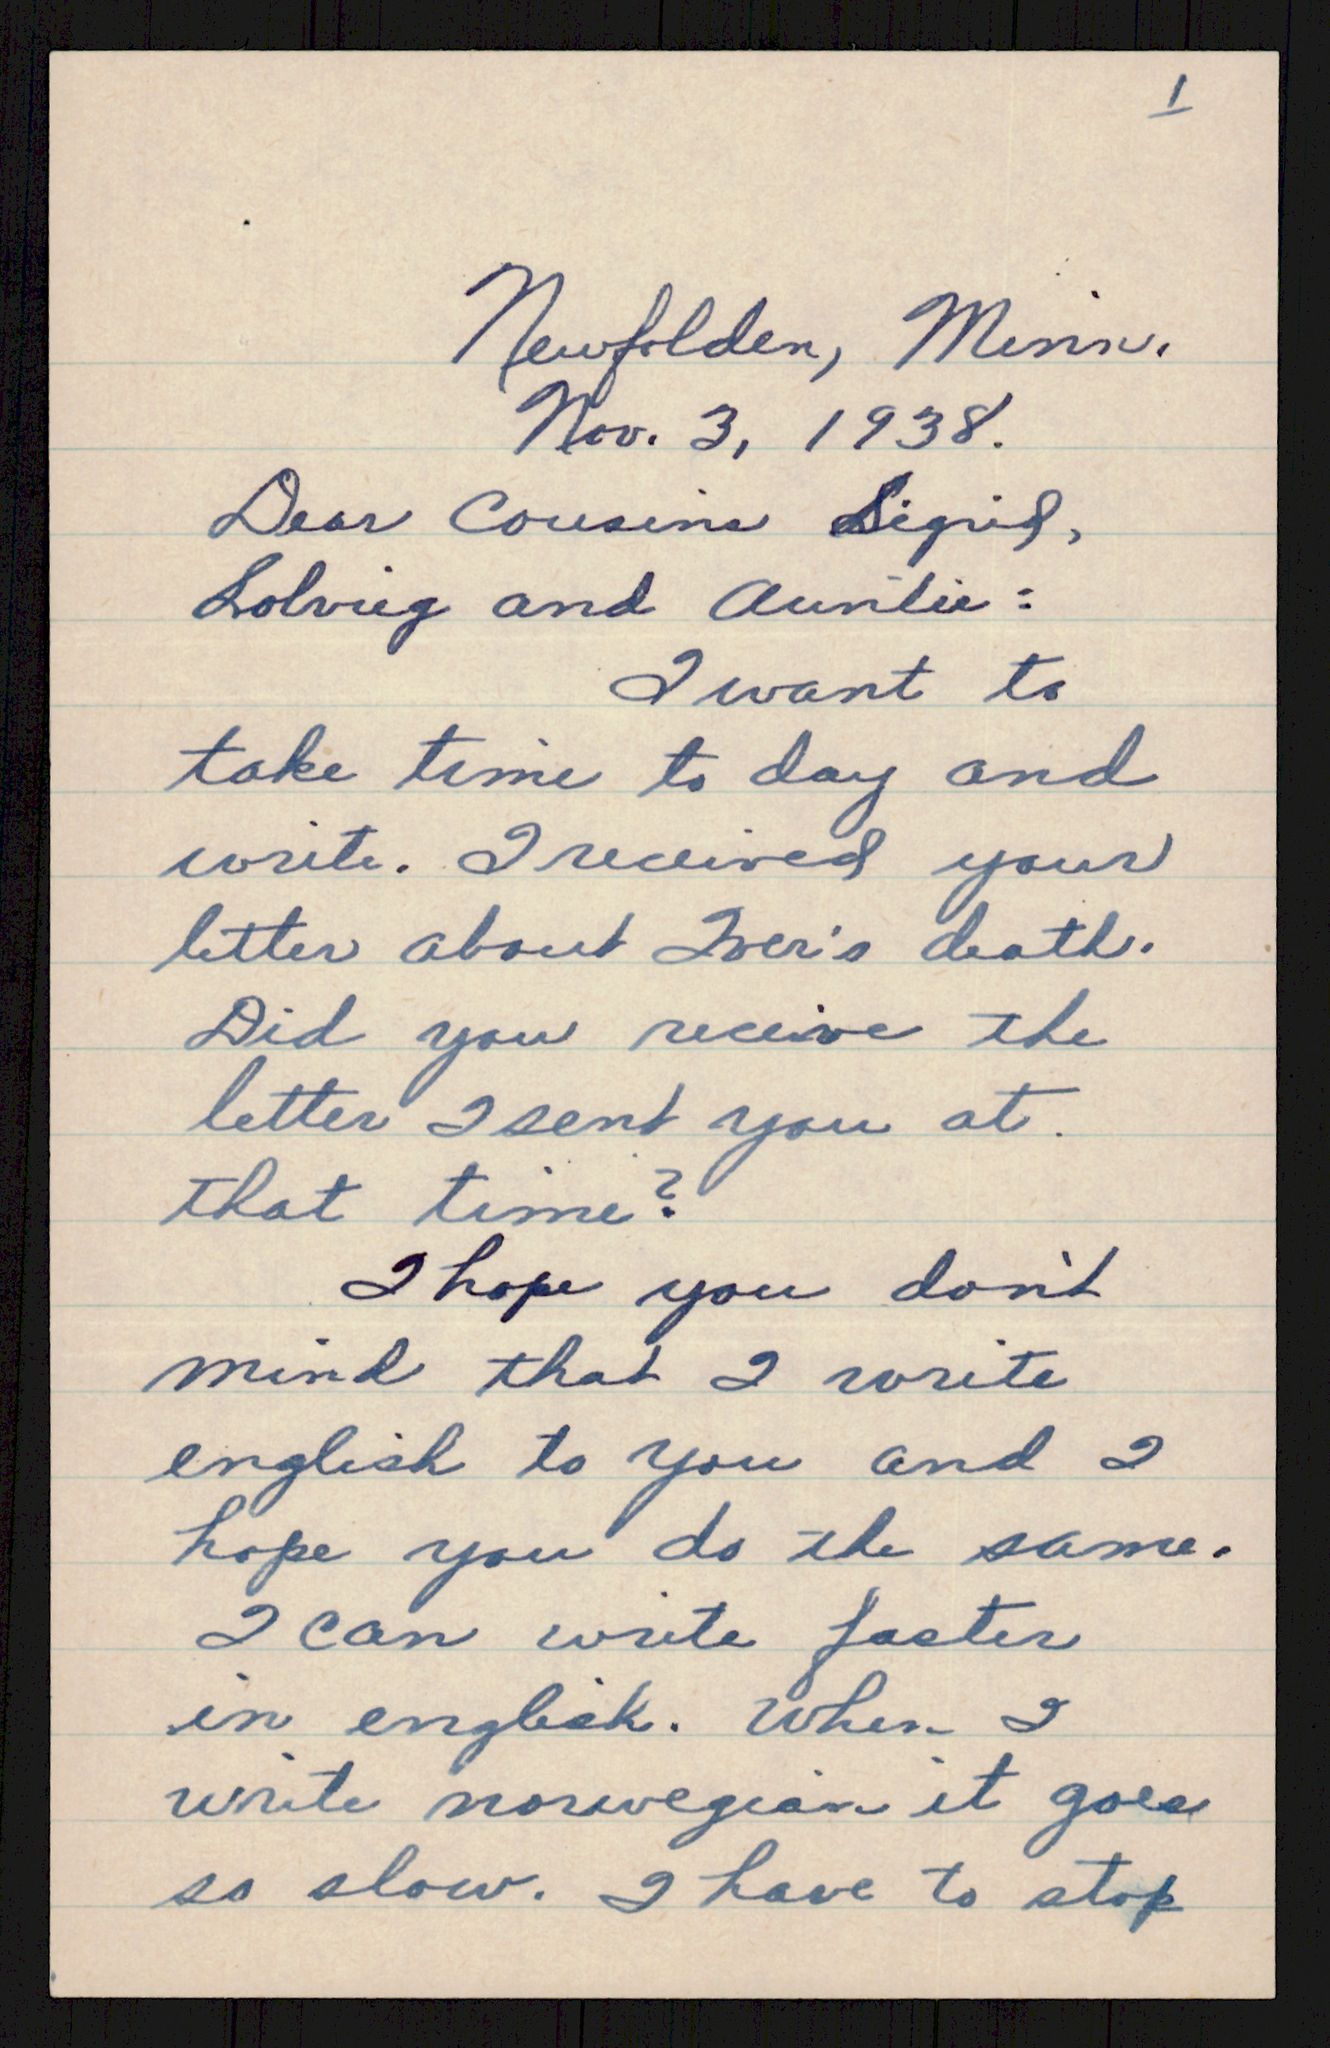 1
Newfolden, Minn.
Nov. 3, 1938.
Dear Cousins Sigrid,
Solvieg and Auntie:
I want to
take time to day and
write. I received your
letter about Iver's death.
Did you receive the
letter I sent you at
that time?
I hope you don't
mind that I write
english to you and I
hope you do the same.
I can write faster
in english. When I
write norwegian it goes
so slow. I have to stop